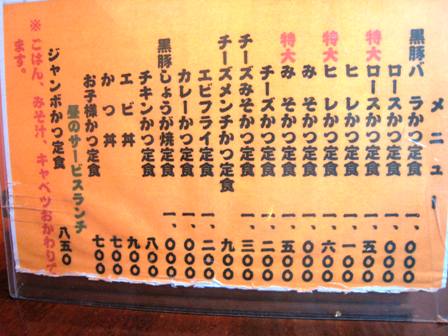 メニュー
黒豚バラかつ定食 一、〇〇〇
ロースかつ定食 一、〇〇〇
特大ロースかつ定食 一、五〇〇
ヒレかつ定食 一、一〇〇
特大ヒレかつ定食 一、六〇〇
みそかつ定食 一、〇〇〇
特大みそかつ定食 一、五〇〇
チーズかつ定食 一、二〇〇
チーズみそかつ定食 一、三〇〇
チーズメンチかつ定食 九〇〇
エビフライ定食 一、二〇〇
カレーかつ定食 一、〇〇〇
黒豚しょうが焼定食 一、〇〇〇
チキンかつ定食 八〇〇
エビ丼 九〇〇
かつ丼 七〇〇
お子様かつ定食 七〇〇
昼のサービスランチ
ジャンボかつ定食 八五〇
※ごはん、みそ汁、キャベツおかわりで
きます。